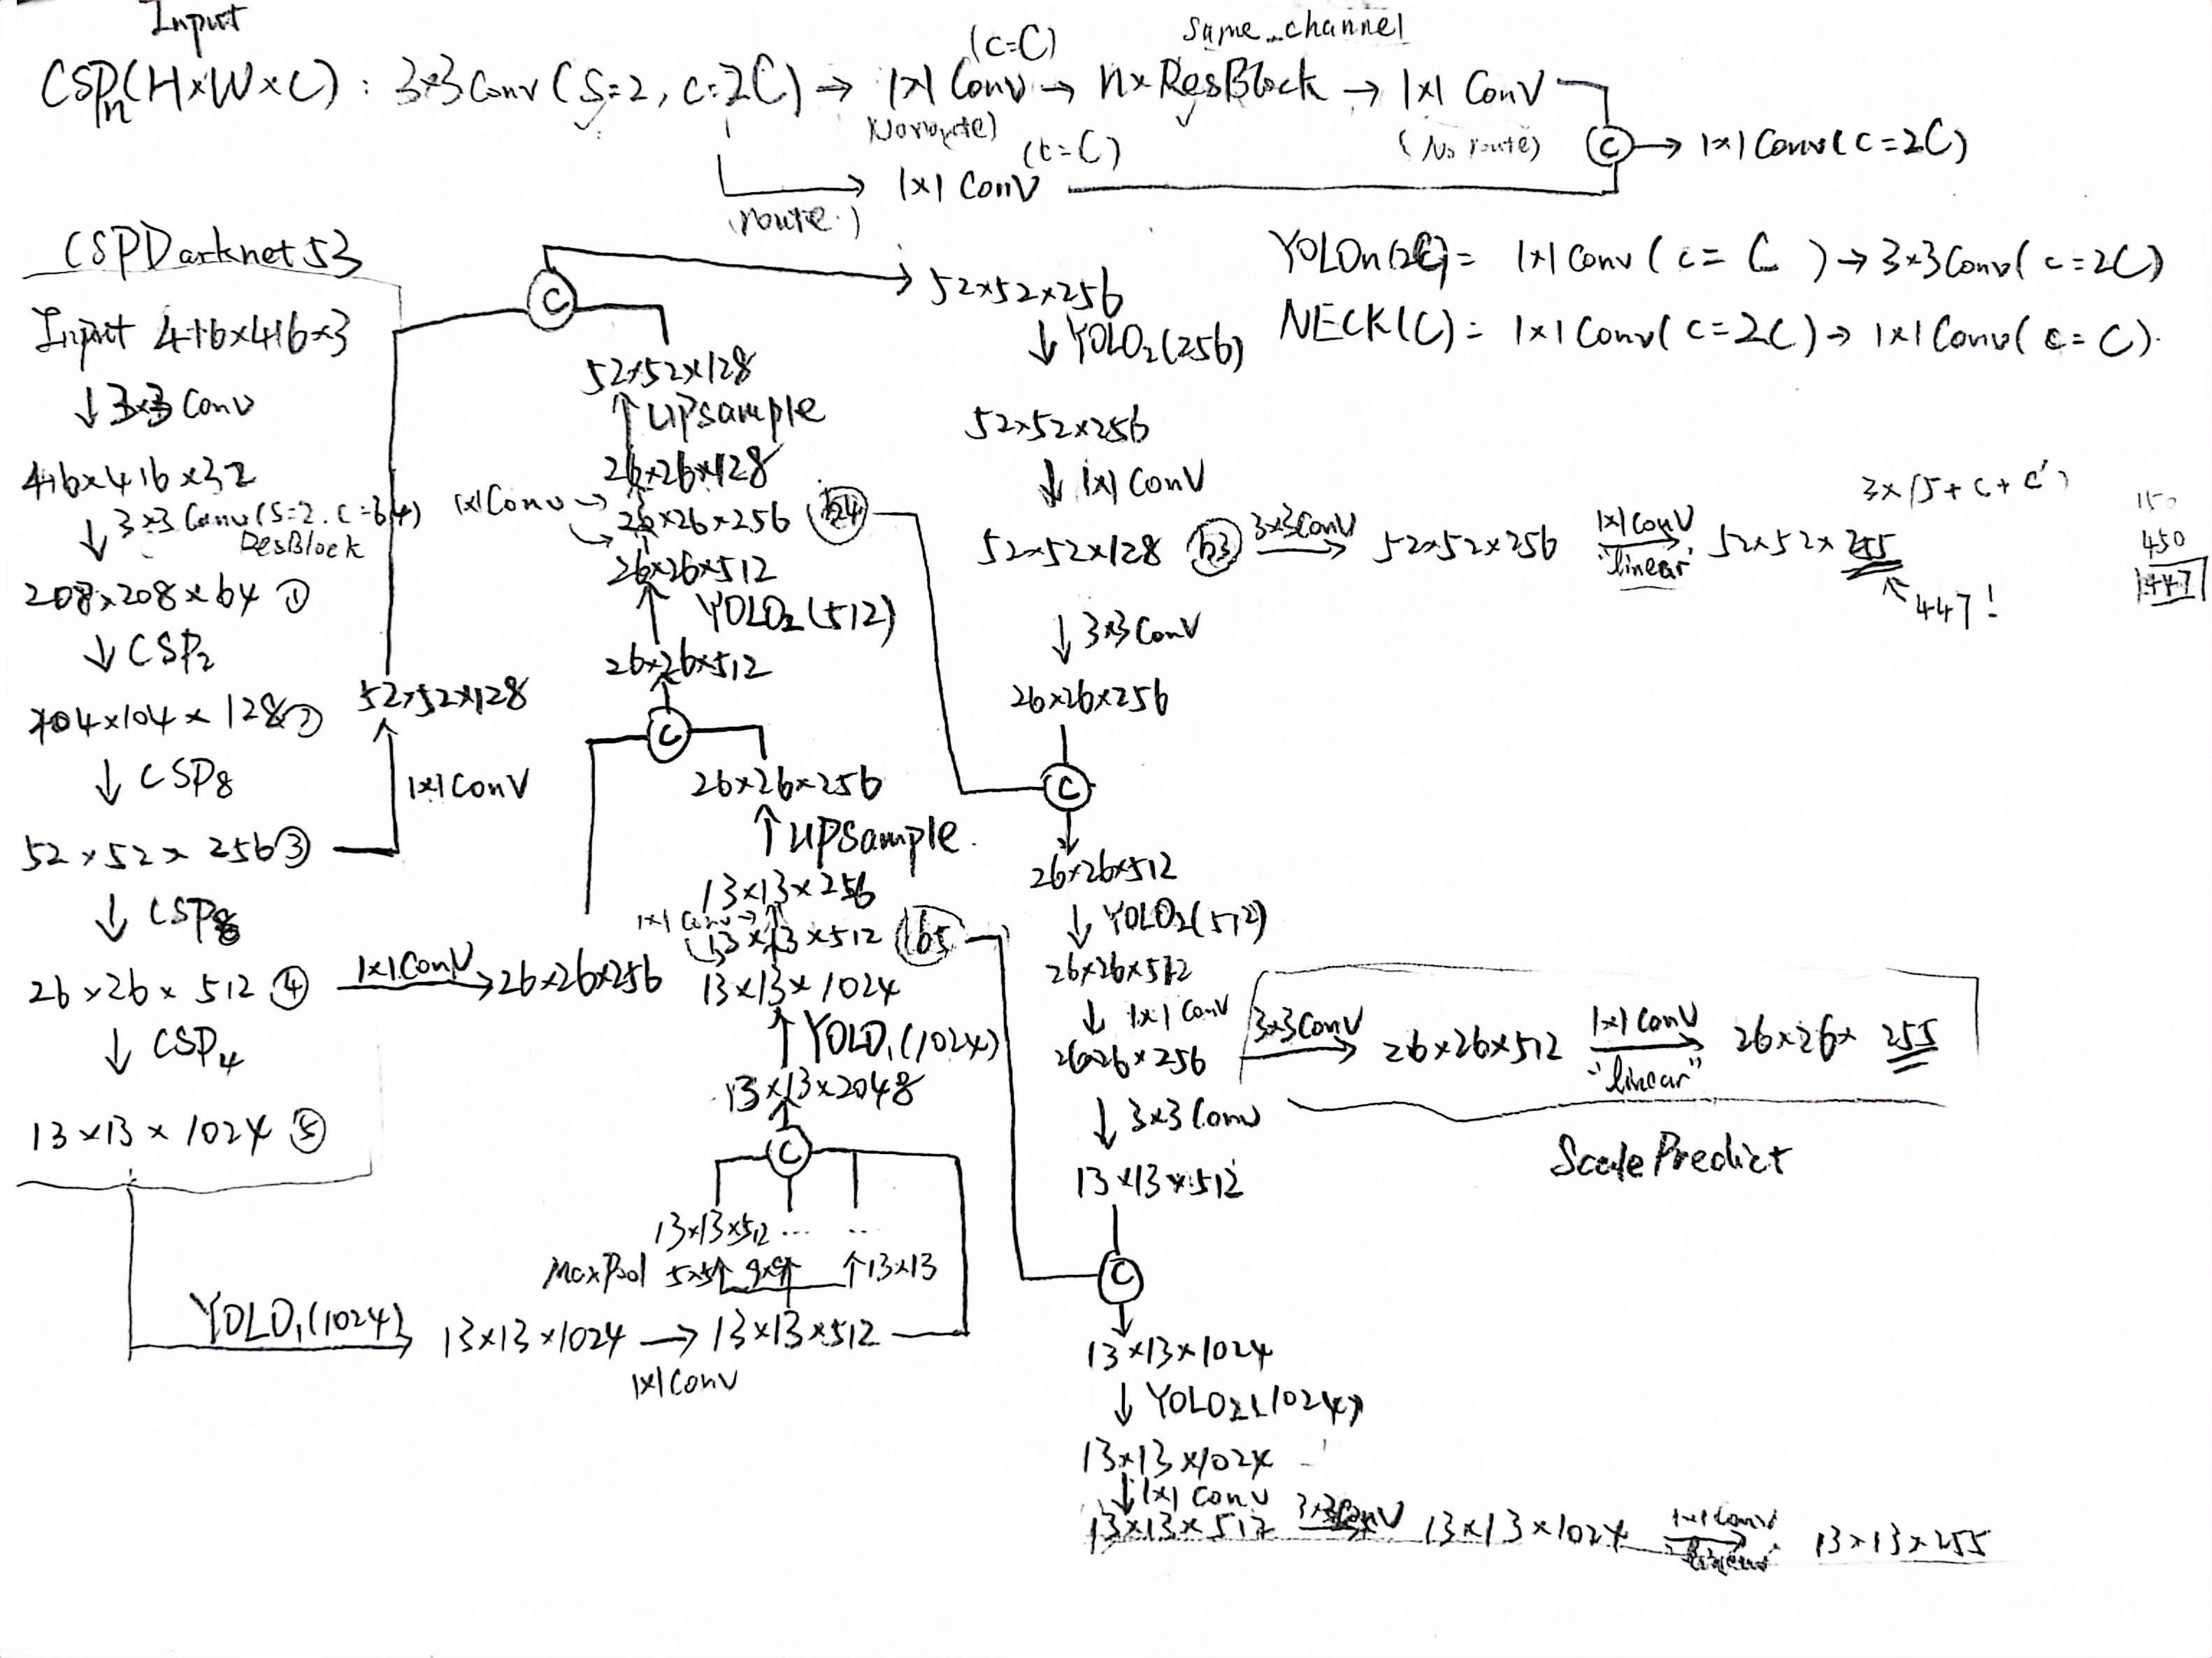 Input
CSPn(H×W×C) : 3×3 Conv (S=2, c=2C) → 1×1 Conv → n×ResBlock → 1×1 Conv
(c=C)
same_channel
(No route)
(No route)
C → 1×1 Conv (c=2C)
(c=C)
1×1 Conv
(route.)
CSPDarknet53
Input 416×416×3
↓ 3×3 Conv
416×416×32
↓ 3×3 Conv (S=2. C=64)
ResBlock
208×208×64 ①
↓ CSP2
104×104×128 ②
↓ CSP8
52×52×256 ③
↓ CSP8
26×26×512 ④
↓ CSP4
13×13×1024 ⑤
YOLO1(1024)
13×13×1024 → 13×13×512
1×1 Conv
MaxPool 5×5↑ 9×9↑ ↑13×13
13×13×512 ... ...
C
13×13×2048
↑ YOLO1(1024)
13×13×1024
13×13×512 b5
1×1 Conv →
13×13×256
↑ UPSample.
26×26×256
1×1 Conv → 26×26×256
C
26×26×512
↑ YOLO2(512)
26×26×512
1×1 Conv → 26×26×256 b4
26×26×128
↑ UPsample
52×52×128
1×1 Conv
52×52×128
C
52×52×256
↓ YOLO2(256)
52×52×256
↓ 1×1 Conv
52×52×128 b3 3×3 Conv → 52×52×256 1×1 Conv "linear" → 52×52×255
3×(5+c+c')
↖ 447!
150
450
447
↓ 3×3 Conv
26×26×256
C
26×26×512
↓ YOLO2(512)
26×26×512
↓ 1×1 Conv
26×26×256 3×3 Conv → 26×26×512 1×1 Conv "linear" → 26×26×255
ScalePredict
↓ 3×3 Conv
13×13×512
C
13×13×1024
↓ YOLO2(1024)
13×13×1024
↓ 1×1 Conv
13×13×512 3×3 Conv → 13×13×1024 1×1 Conv linear → 13×13×255
YOLOn(2C) = 1×1 Conv (c= C ) → 3×3 Conv( c=2C)
NECK(C) = 1×1 Conv( c=2C) → 1×1 Conv( c= C).